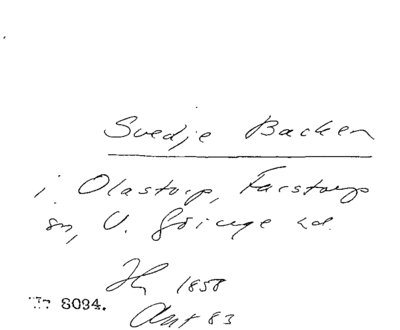 Svedje Backen
i Olastorp, Farstorps
sn, V. Göinge hd.
1858
8094.
83